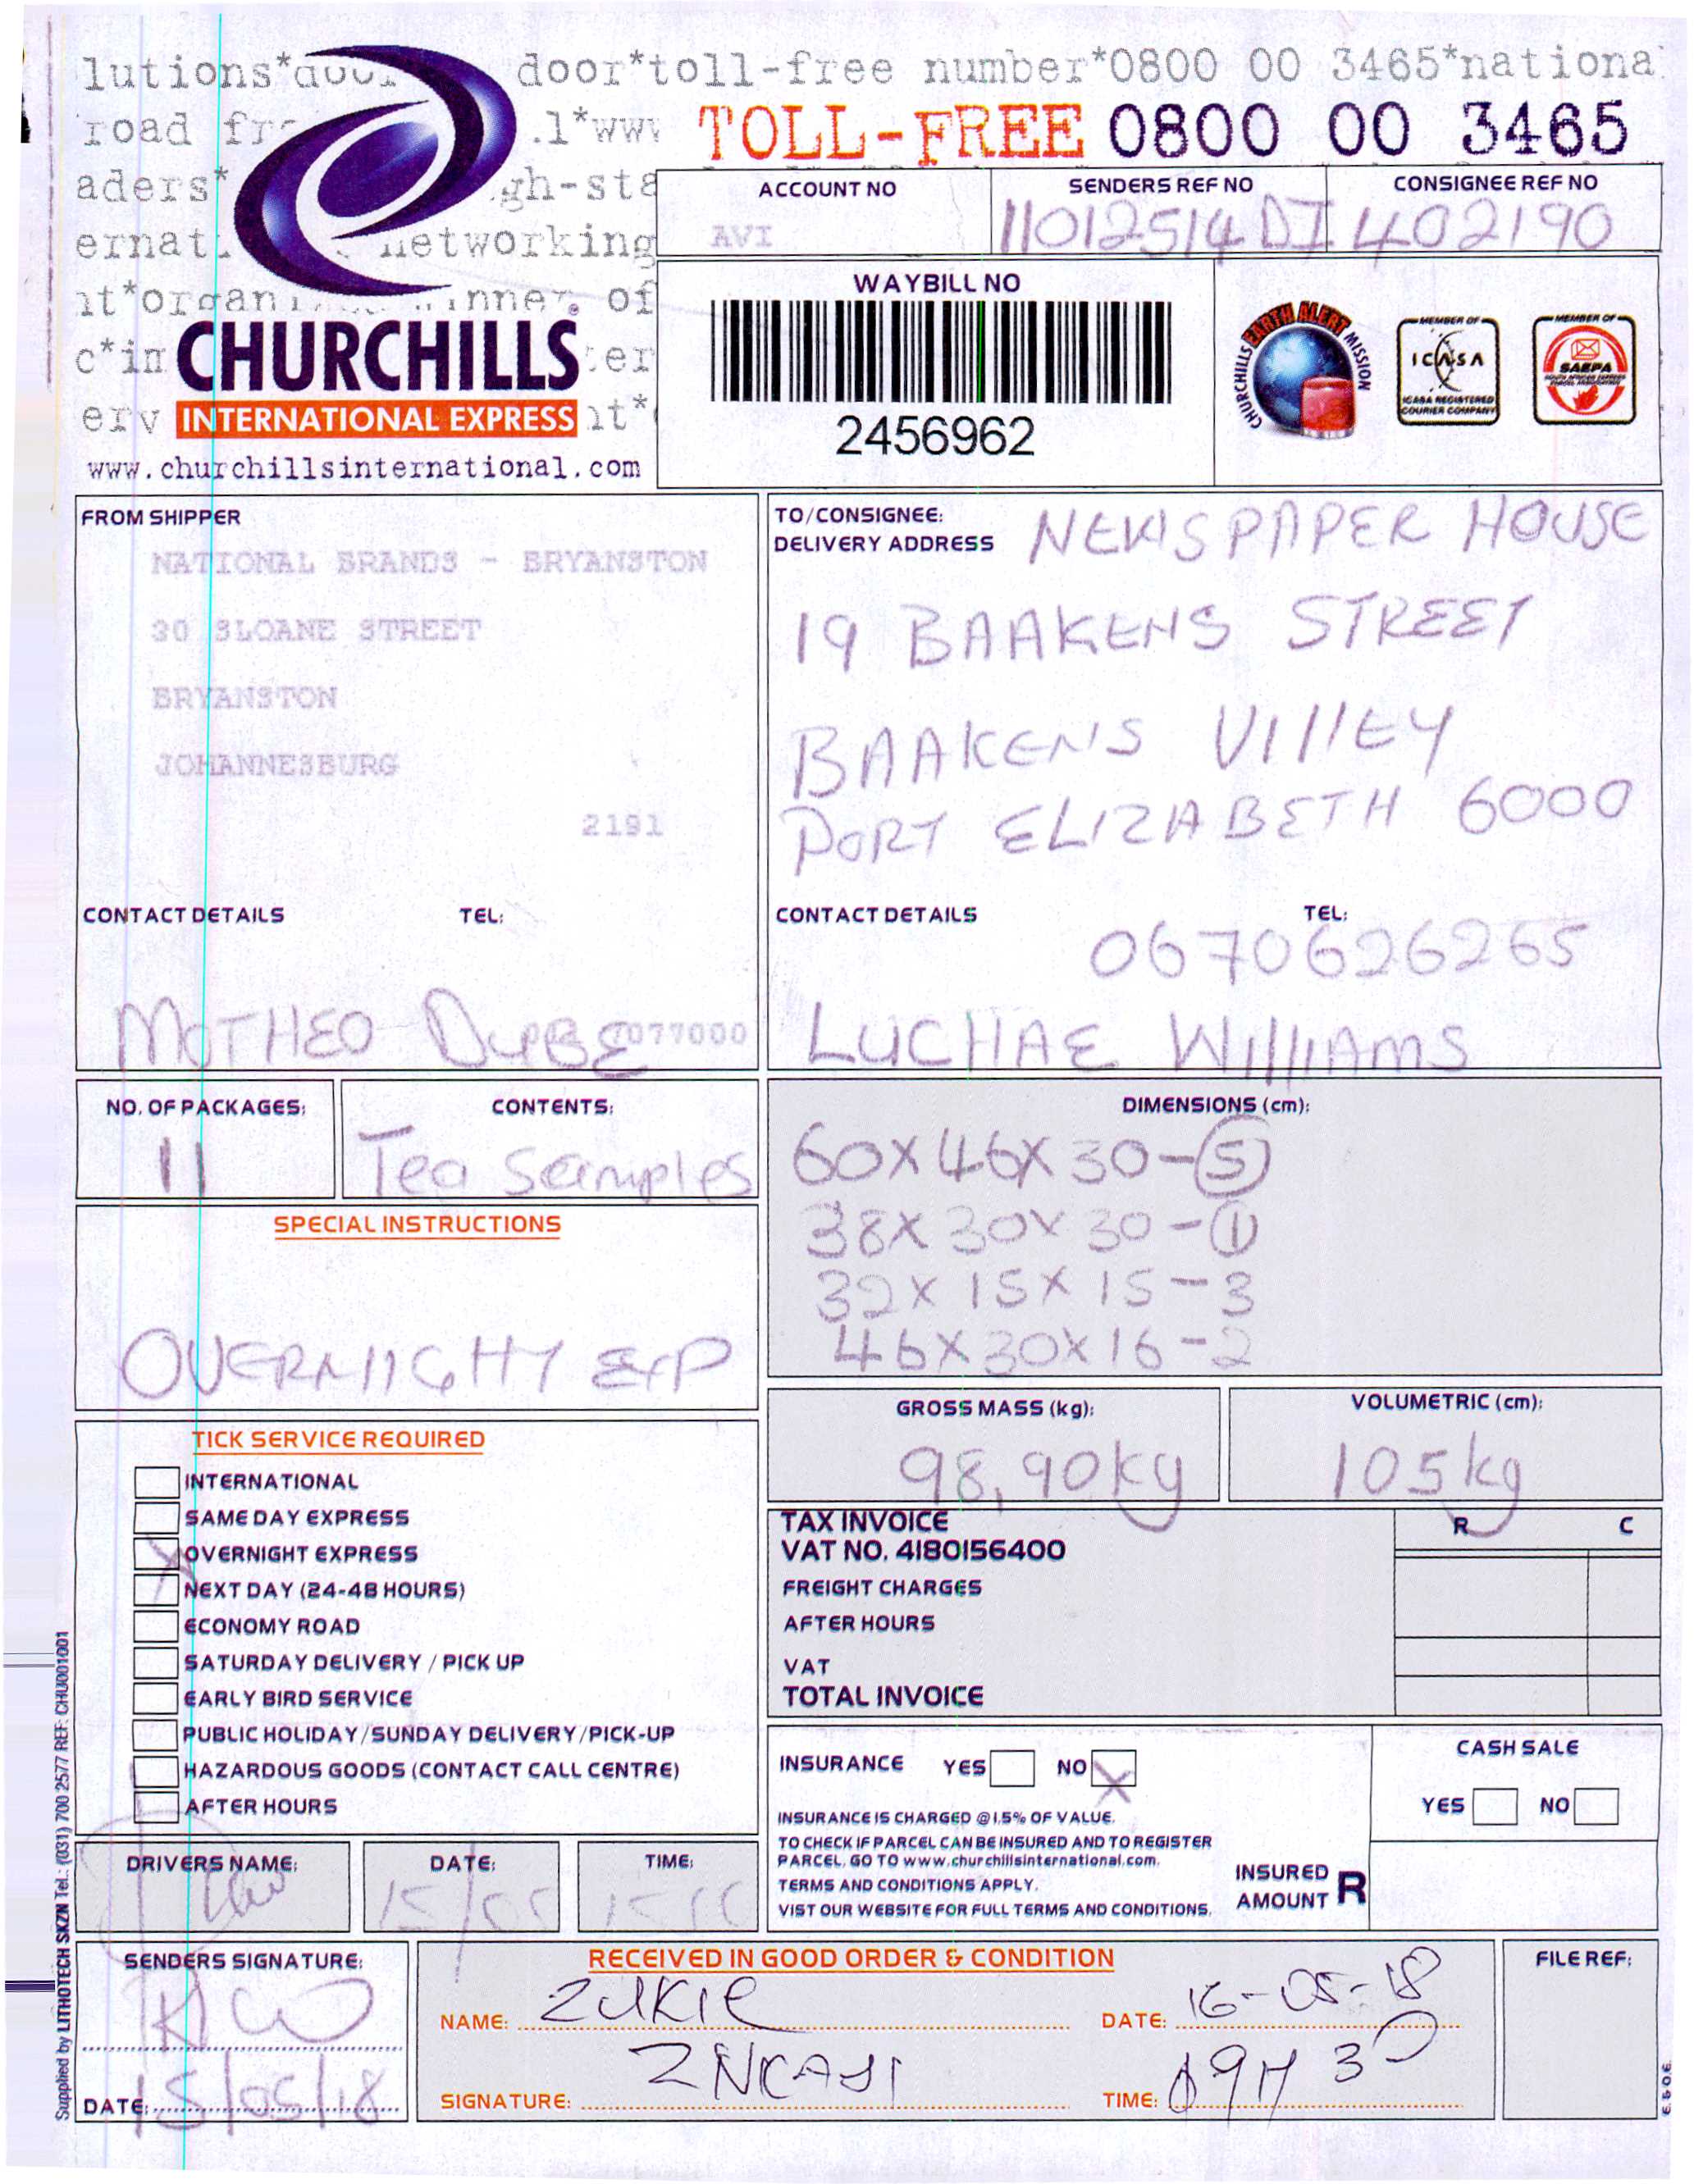 door*toll-free number*0800 00 3465*nationa
TOLL-FREE 0800 00 3465
CHURCHILLS
INTERNATIONAL EXPRESS
www.churchillsinternational.com
ACCOUNT NO
AVI
SENDERS REF NO
11012514DI
CONSIGNEE REF NO
402190
WAYBILL NO
2456962
CHURCHILLS EARTH ALERT MISSION
MEMBER OF
ICASA
ICASA REGISTERED
COURIER COMPANY
MEMBER OF
SAEPA
FROM SHIPPER
NATIONAL BRANDS - BRYANSTON
30 SLOANE STREET
BRYANSTON
JOHANNESBURG
2191
CONTACT DETAILS TEL:
MOTHEO DUBE 7077000
TO/CONSIGNEE:
DELIVERY ADDRESS NEWSPAPER HOUSE
19 BAAKENS STREET
BAAKENS VIllEY
PORT ELIZABETH 6000
CONTACT DETAILS TEL:
0670626265
LUCHAE WIllIAMS
NO. OF PACKAGES:
11
CONTENTS:
Tea Samples
DIMENSIONS (cm):
60X46X30-5
38X30X30-1
32X15X15-3
46X30X16-2
SPECIAL INSTRUCTIONS
OVERNIGHT EXP
GROSS MASS (kg):
98,90kg
VOLUMETRIC (cm):
105kg
TICK SERVICE REQUIRED
INTERNATIONAL
SAME DAY EXPRESS
X OVERNIGHT EXPRESS
NEXT DAY (24-48 HOURS)
ECONOMY ROAD
SATURDAY DELIVERY / PICK UP
EARLY BIRD SERVICE
PUBLIC HOLIDAY/SUNDAY DELIVERY/PICK-UP
HAZARDOUS GOODS (CONTACT CALL CENTRE)
AFTER HOURS
TAX INVOICE R C
VAT NO. 4180156400
FREIGHT CHARGES
AFTER HOURS
VAT
TOTAL INVOICE
INSURANCE YES NO X
INSURANCE IS CHARGED @1.5% OF VALUE.
TO CHECK IF PARCEL CAN BE INSURED AND TO REGISTER
PARCEL, GO TO www.churchillsinternational.com.
TERMS AND CONDITIONS APPLY.
VIST OUR WEBSITE FOR FULL TERMS AND CONDITIONS.
INSURED
AMOUNT R
CASH SALE
YES NO
DRIVERS NAME:
DATE:
15/05
TIME:
SENDERS SIGNATURE:
DATE: 15/05/18
RECEIVED IN GOOD ORDER & CONDITION
NAME: ZUKIE
DATE: 16-05-18
SIGNATURE:
TIME: 09H30
FILE REF:
Supplied by LITHOTECH SKZN Tel.: (031) 700 2577 REF: CHU001001